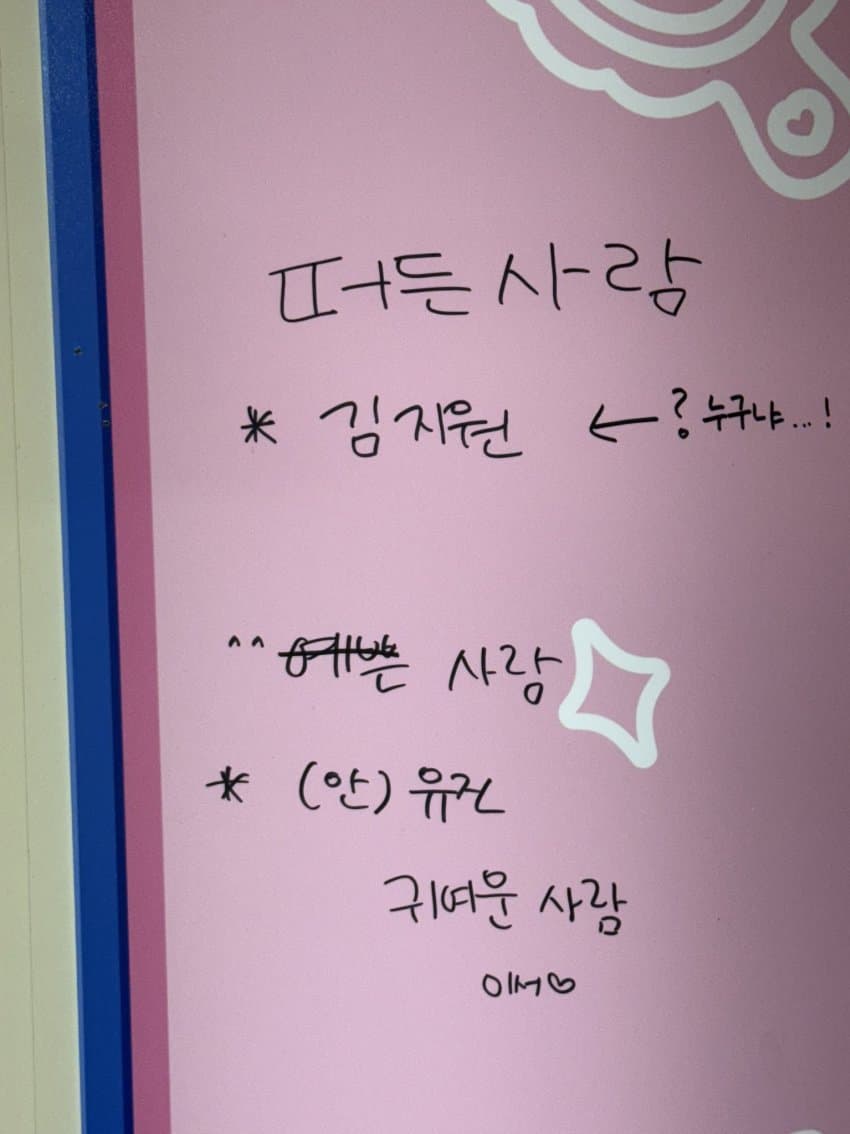 떠든 사람
* 김지원 ← ? 누구냐...!
^^ 예쁜 사람
* (안) 유진
귀여운 사람
이서♡